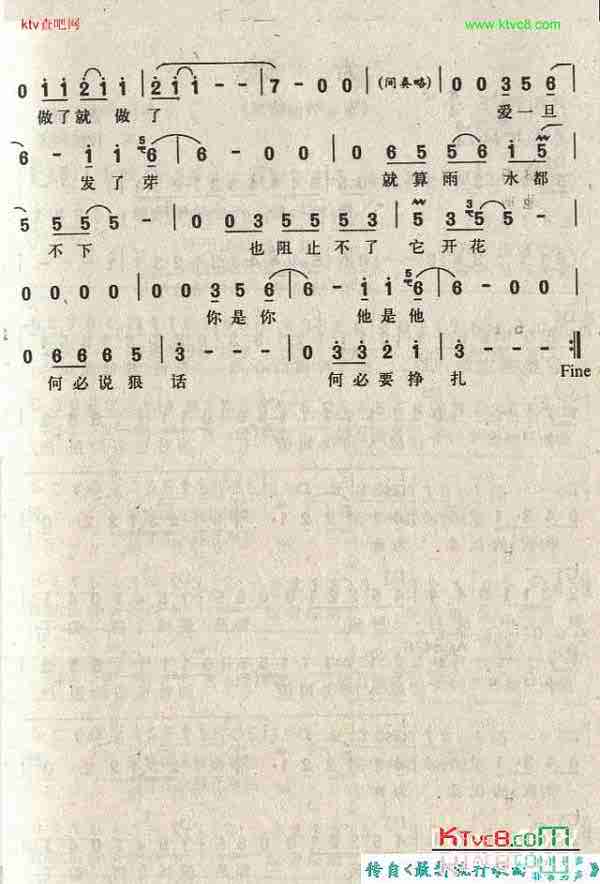 ktv查吧网 www.ktvc8.com
0 1 1 2 1 1 2 1 1 - - 7 - 0 0 (间奏略) 0 0 3 5 6
做了就 做 了 爱一旦
6 - 1 1 6 6 - 0 0 0 6 5 5 6 1 5
发了芽 就算雨 水都
5 5 5 5 - 0 0 3 5 5 5 3 5 5 5 -
不下 也阻止不了 它开花
0 0 0 0 0 0 3 5 6 6 - 1 1 6 6 - 0 0
你是你 他是他
0 6 6 6 5 3 - - - 0 3 3 2 1 3 - - :||
何必说狠 话 何必要挣 扎 Fine
KTvc8.com
传自